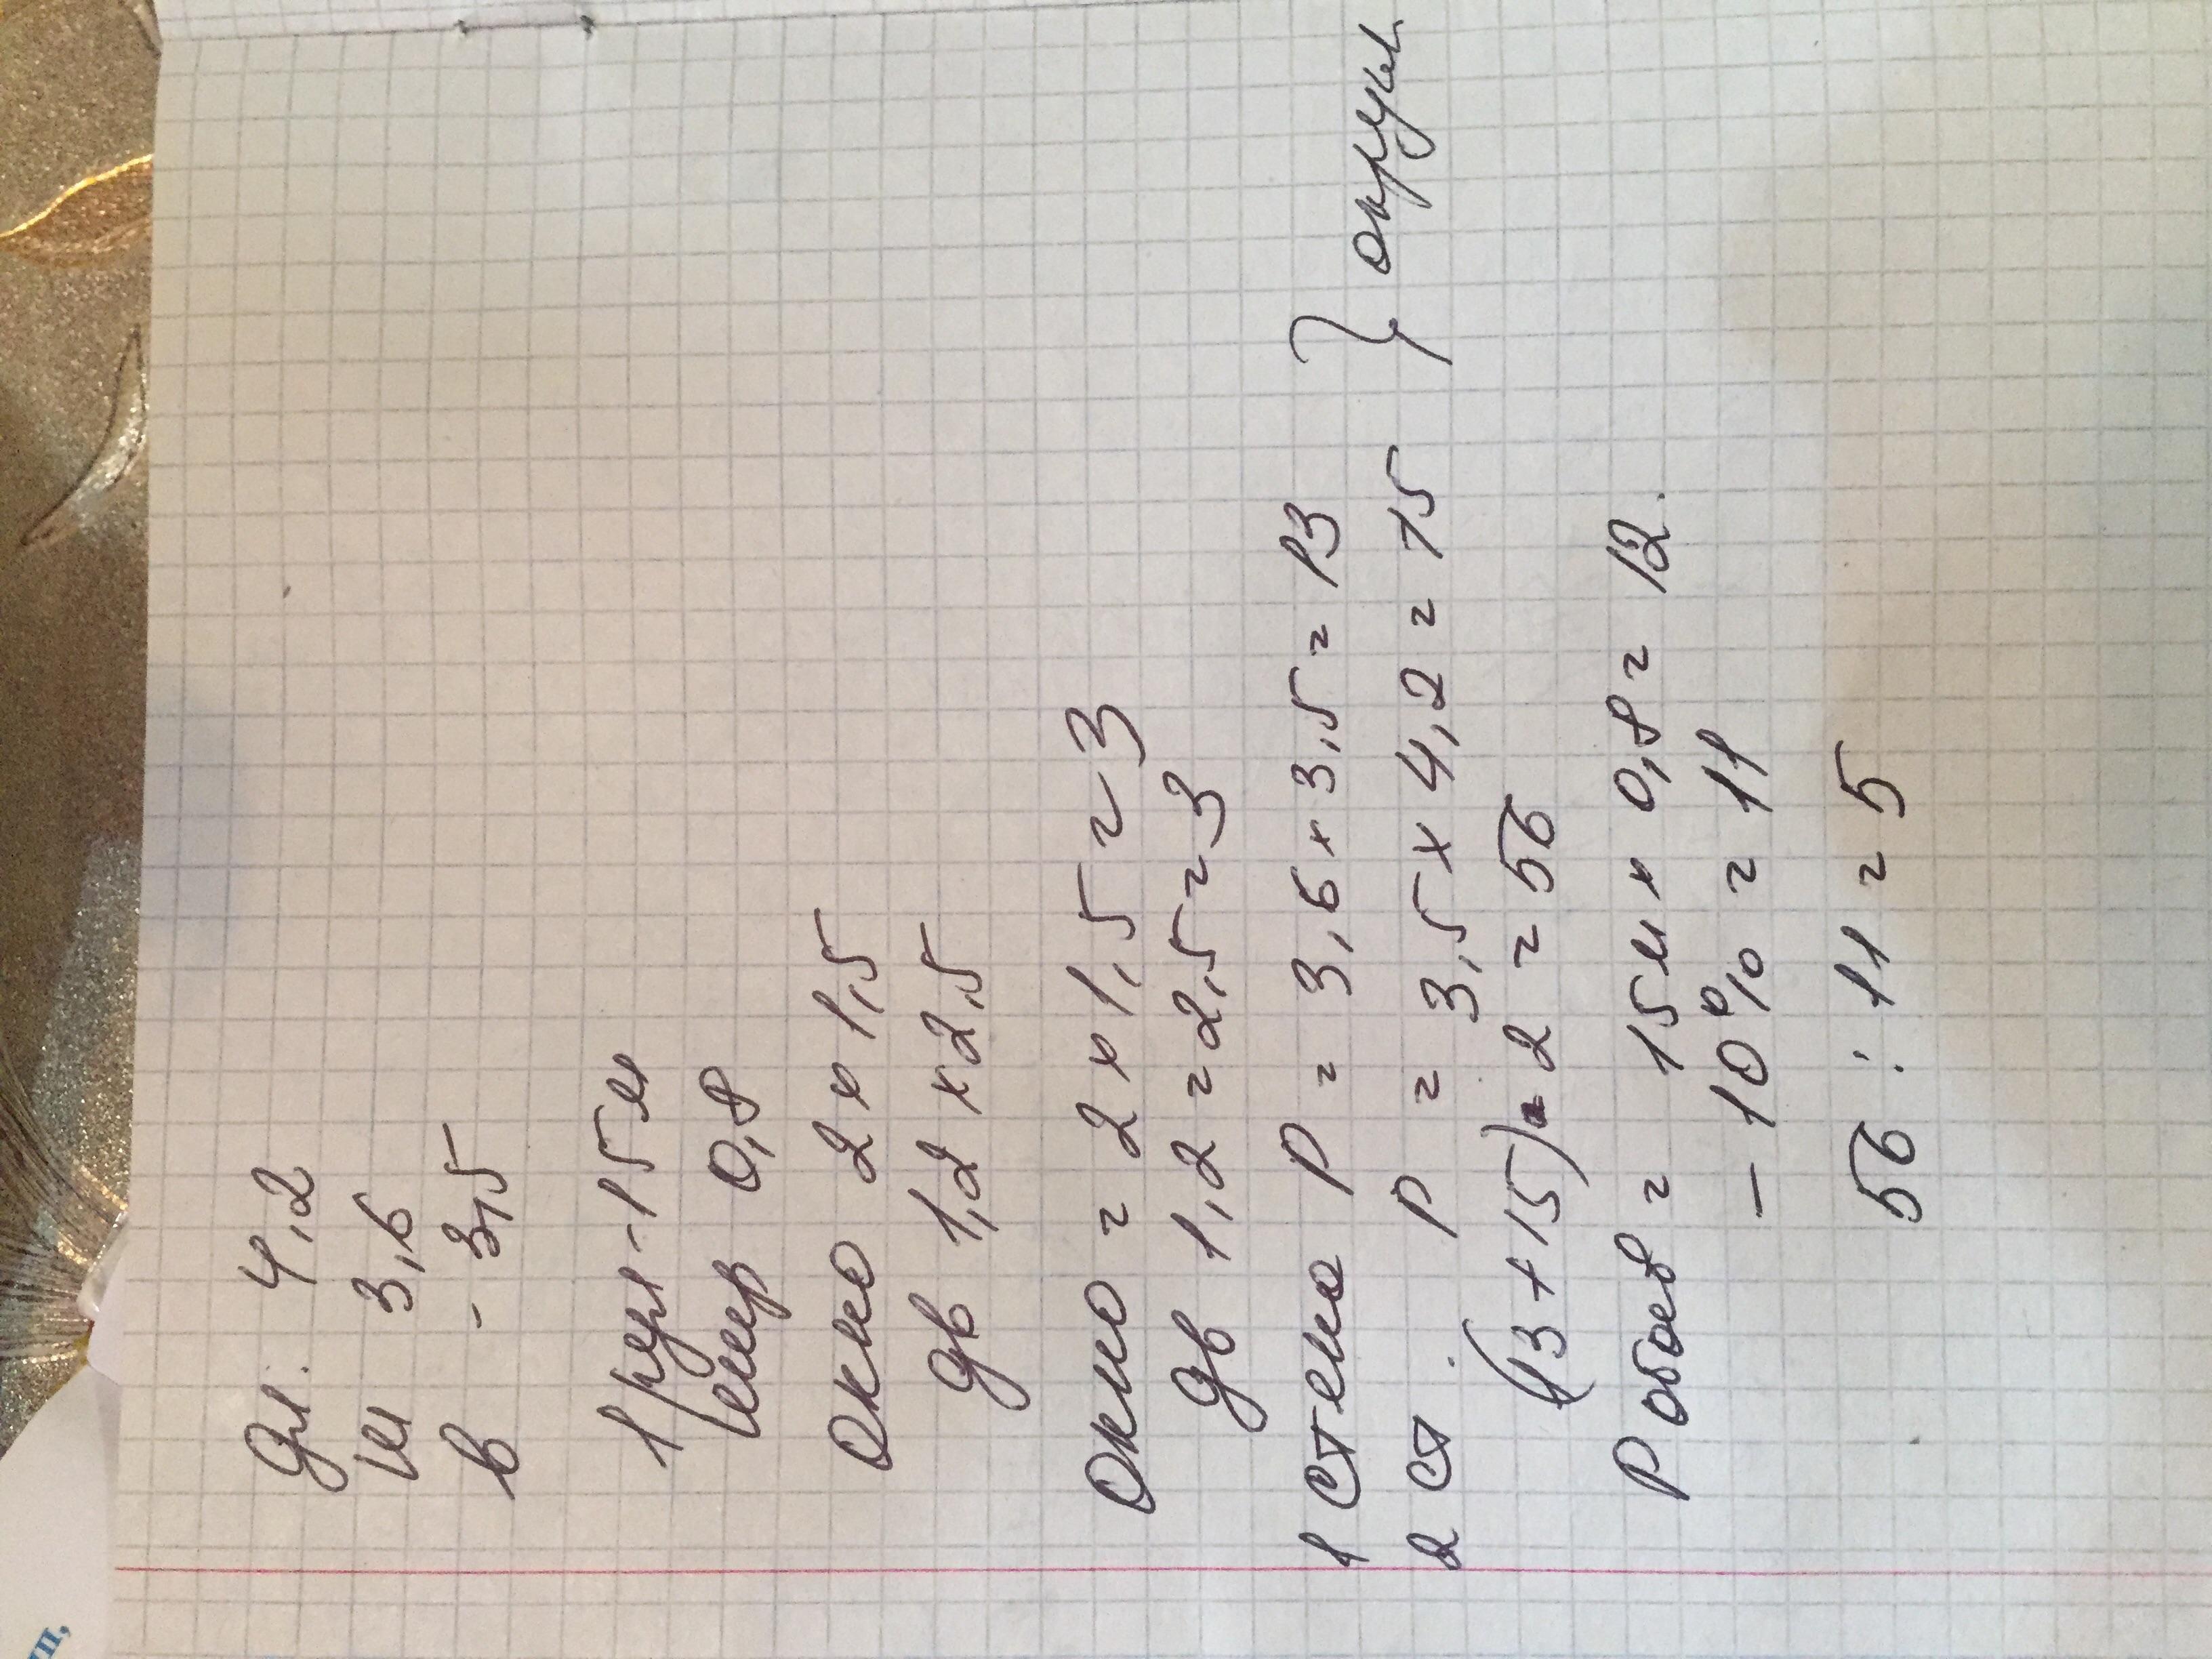 Дл. 4,2
ш 3,6
в - 3,5
1 рул - 15 м
шир 0,8
Окно 2 х 1,5
дв 1,2 х 2,5
Окно = 2 х 1,5 = 3
дв 1,2 = 2,5 = 3
1 стена P = 3,6 х 3,5 = 13
2 ст. P = 3,5 х 4,2 = 15
} округл.
(13 + 15) 2 = 56
P обоев = 15 м х 0,8 = 12.
- 10% = 11
56 : 11 = 5